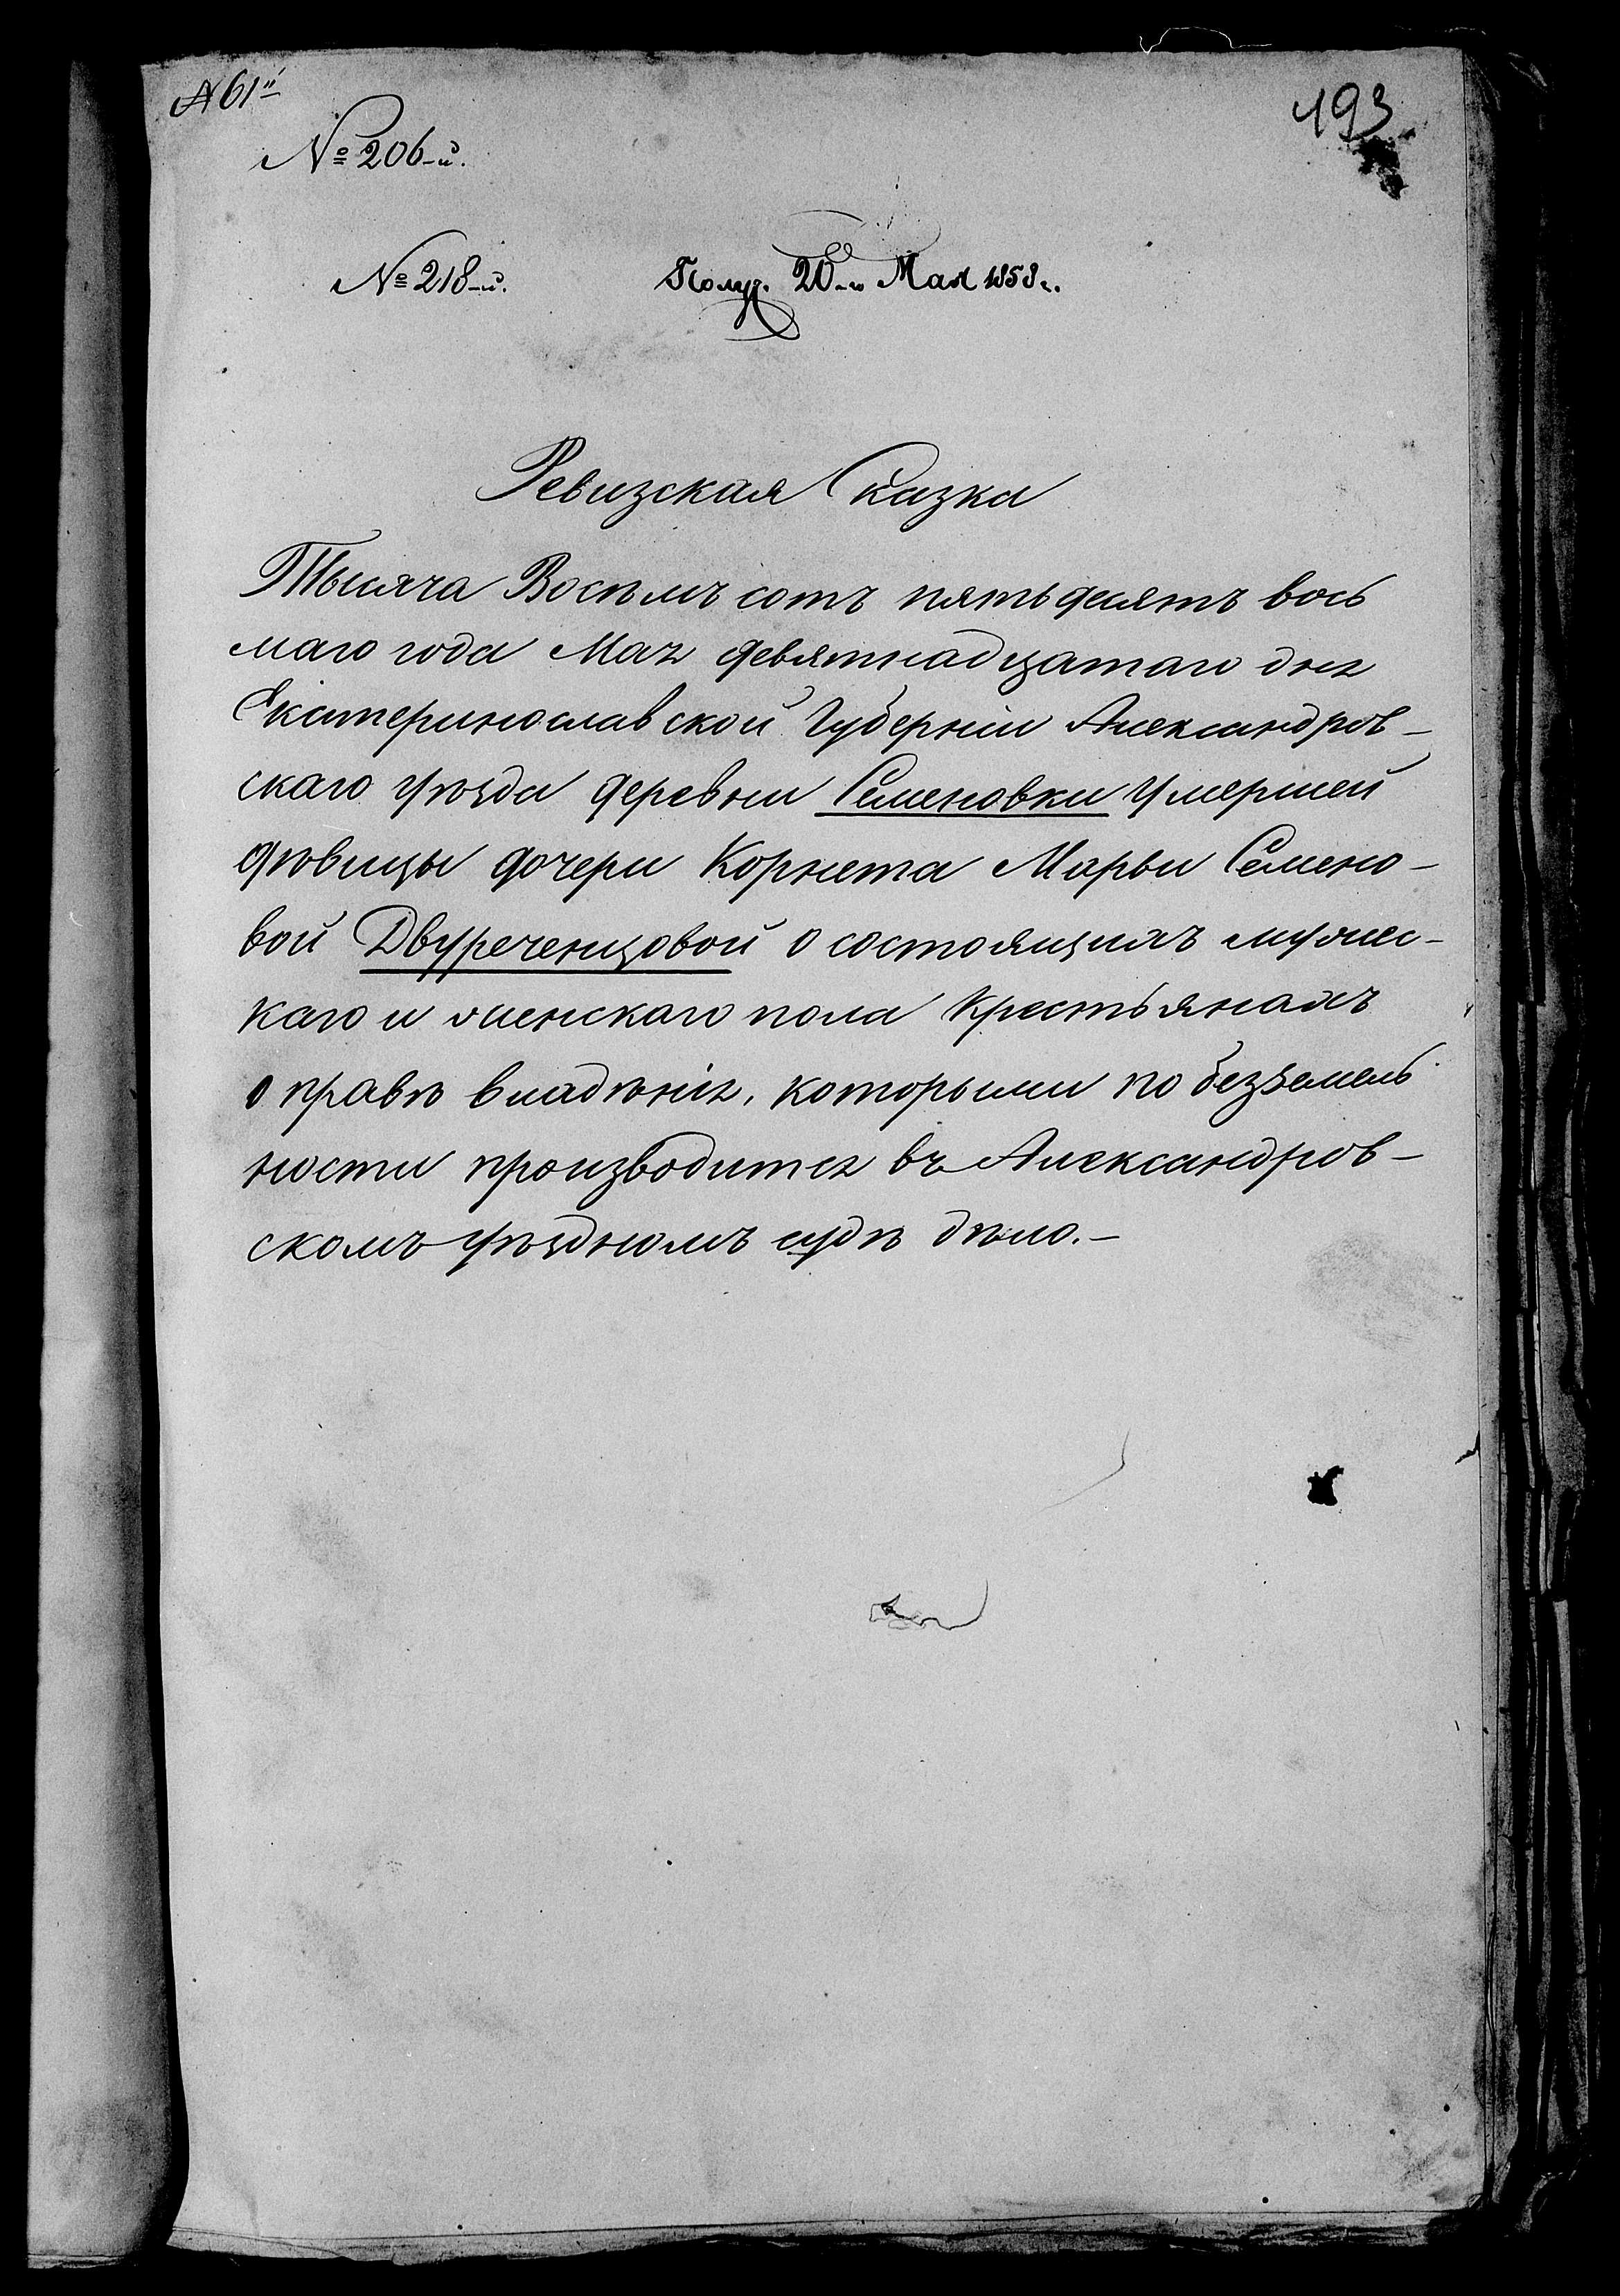 № 61й
493
№ 206-й.
№ 218-й. Получ. 20-го Мая 1858 г.
Ревизская Сказка
Тысяча Восѣмъ сотъ пятьдесятъ вось
маго года Мая девятнадцатаго дня
Екатеринославской Губерніи Александров-
скаго уѣзда деревни Семеновки Умершей
дѣвицы дочери Корнета Марьи Семено-
вой Двуреченцовой о состоящихъ мужес-
каго и женскаго пола Крестьянахъ
о правѣ владѣнія, которыми по безземель
ности производится въ Александров-
скомъ уѣздномъ судѣ дѣло.-